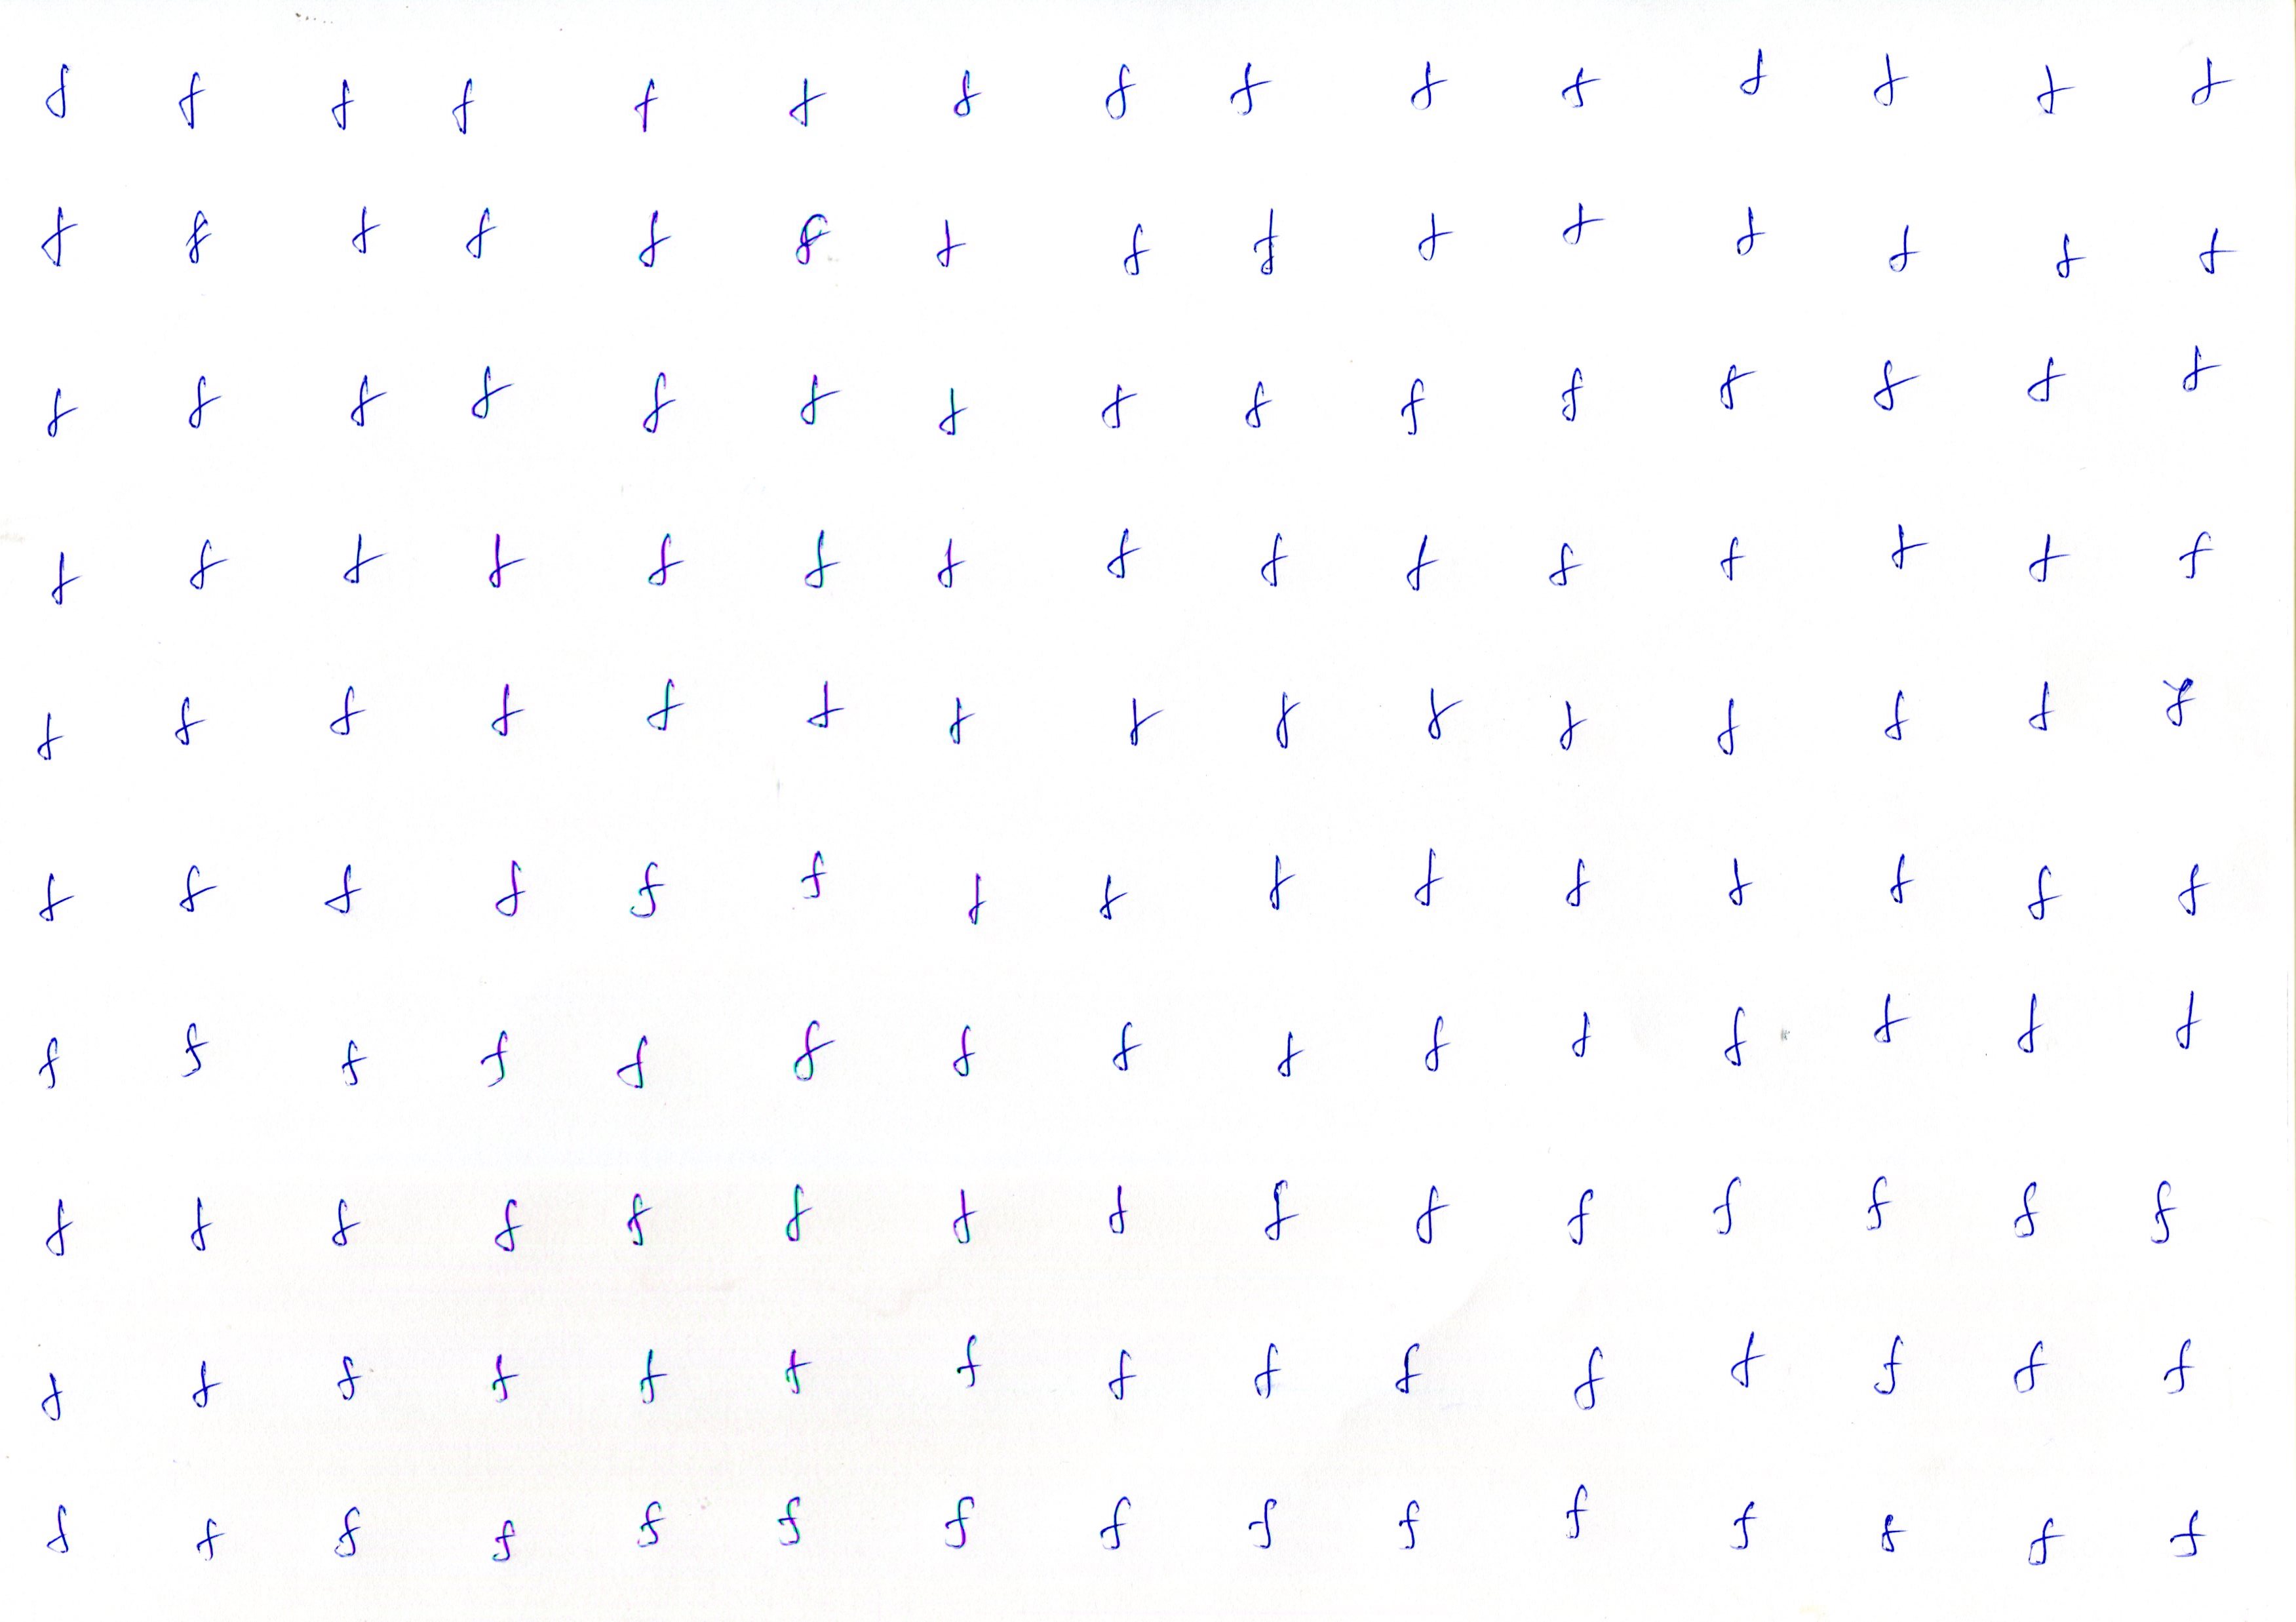 f f f f f f f f f f f f f f f
f f f f f f f f f f f f f f f
f f f f f f f f f f f f f f f
f f f f f f f f f f f f f f f
f f f f f f f f f f f f f f f
f f f f f f f f f f f f f f f
f f f f f f f f f f f f f f f
f f f f f f f f f f f f f f f
f f f f f f f f f f f f f f f
f f f f f f f f f f f f f f f